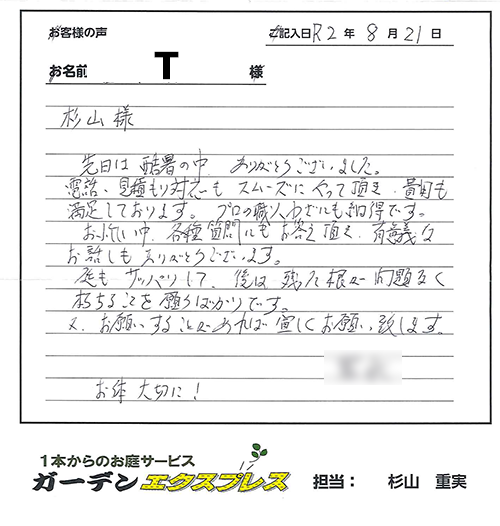 お客様の声 ご記入日R2年8月21日
お名前 T 様
杉山様
先日は酷暑の中、ありがとうございました。
電話、見積もり対応もスムーズにやって頂き、費用も
満足しております。プロの職人わざにも納得です。
お忙い中、各種質問にもお答え頂き、有意義な
お話しもありがとうございます。
庭もサッパリして、後は残った根が問題なく
朽ちることを願うばかりです。
又、お願いすることがあれば宜しくお願い致します。
お体大切に!
1本からのお庭サービス
ガーデンエクスプレス 担当: 杉山 重実